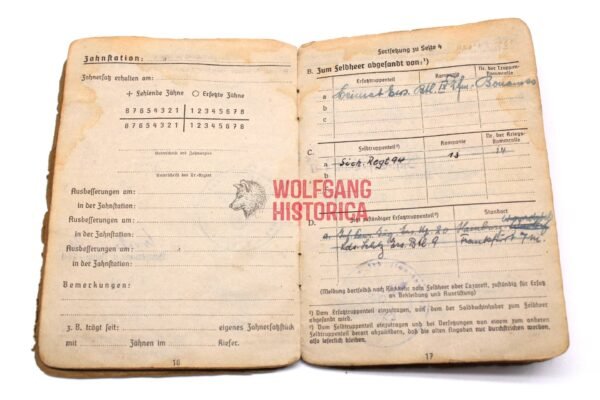 Zahnstation:
Zahnersatz erhalten am:
+ Fehlende Zähne ○ Ersetzte Zähne
8 7 6 5 4 3 2 1 | 1 2 3 4 5 6 7 8
8 7 6 5 4 3 2 1 | 1 2 3 4 5 6 7 8
Unterschrift des Zahnarztes
Ausbesserungen am:
in der Zahnstation:
Ausbesserungen am:
in der Zahnstation:
Ausbesserungen am:
in der Zahnstation:
Bemerkungen:
z. B. trägt seit: eigenes Zahnersatzstück
mit Zähnen im Kiefer.
16
Fortsetzung zu Seite 4
B. Zum Feldheer abgesandt von:¹)
Ersatztruppenteil Kompanie Nr. der Truppenstammrolle
a Heimat Ers. Btl.
b
c
C. Feldtruppenteil²) Kompanie Nr. der Kriegsstammrolle
a Regt 94 13 14
b
c
D. Jetzt zuständiger Ersatztruppenteil²) Standort
a. 20 Hamburg
Ers. Btl. 9 Frankfurt
(Meldung dortselbst nach Rückkehr vom Feldheer oder Lazarett, zuständig für Ersatz
an Bekleidung und Ausrüstung)
¹) Vom Ersatztruppenteil einzutragen, von dem der Soldbuchinhaber zum Feldheer
abgesandt wird.
²) Vom Feldtruppenteil einzutragen und bei Versetzungen von einem zum anderen
Feldtruppenteil derart abzuändern, daß die alten Angaben nur durchstrichen werden,
also leserlich bleiben.
17
WOLFGANG
HISTORICA